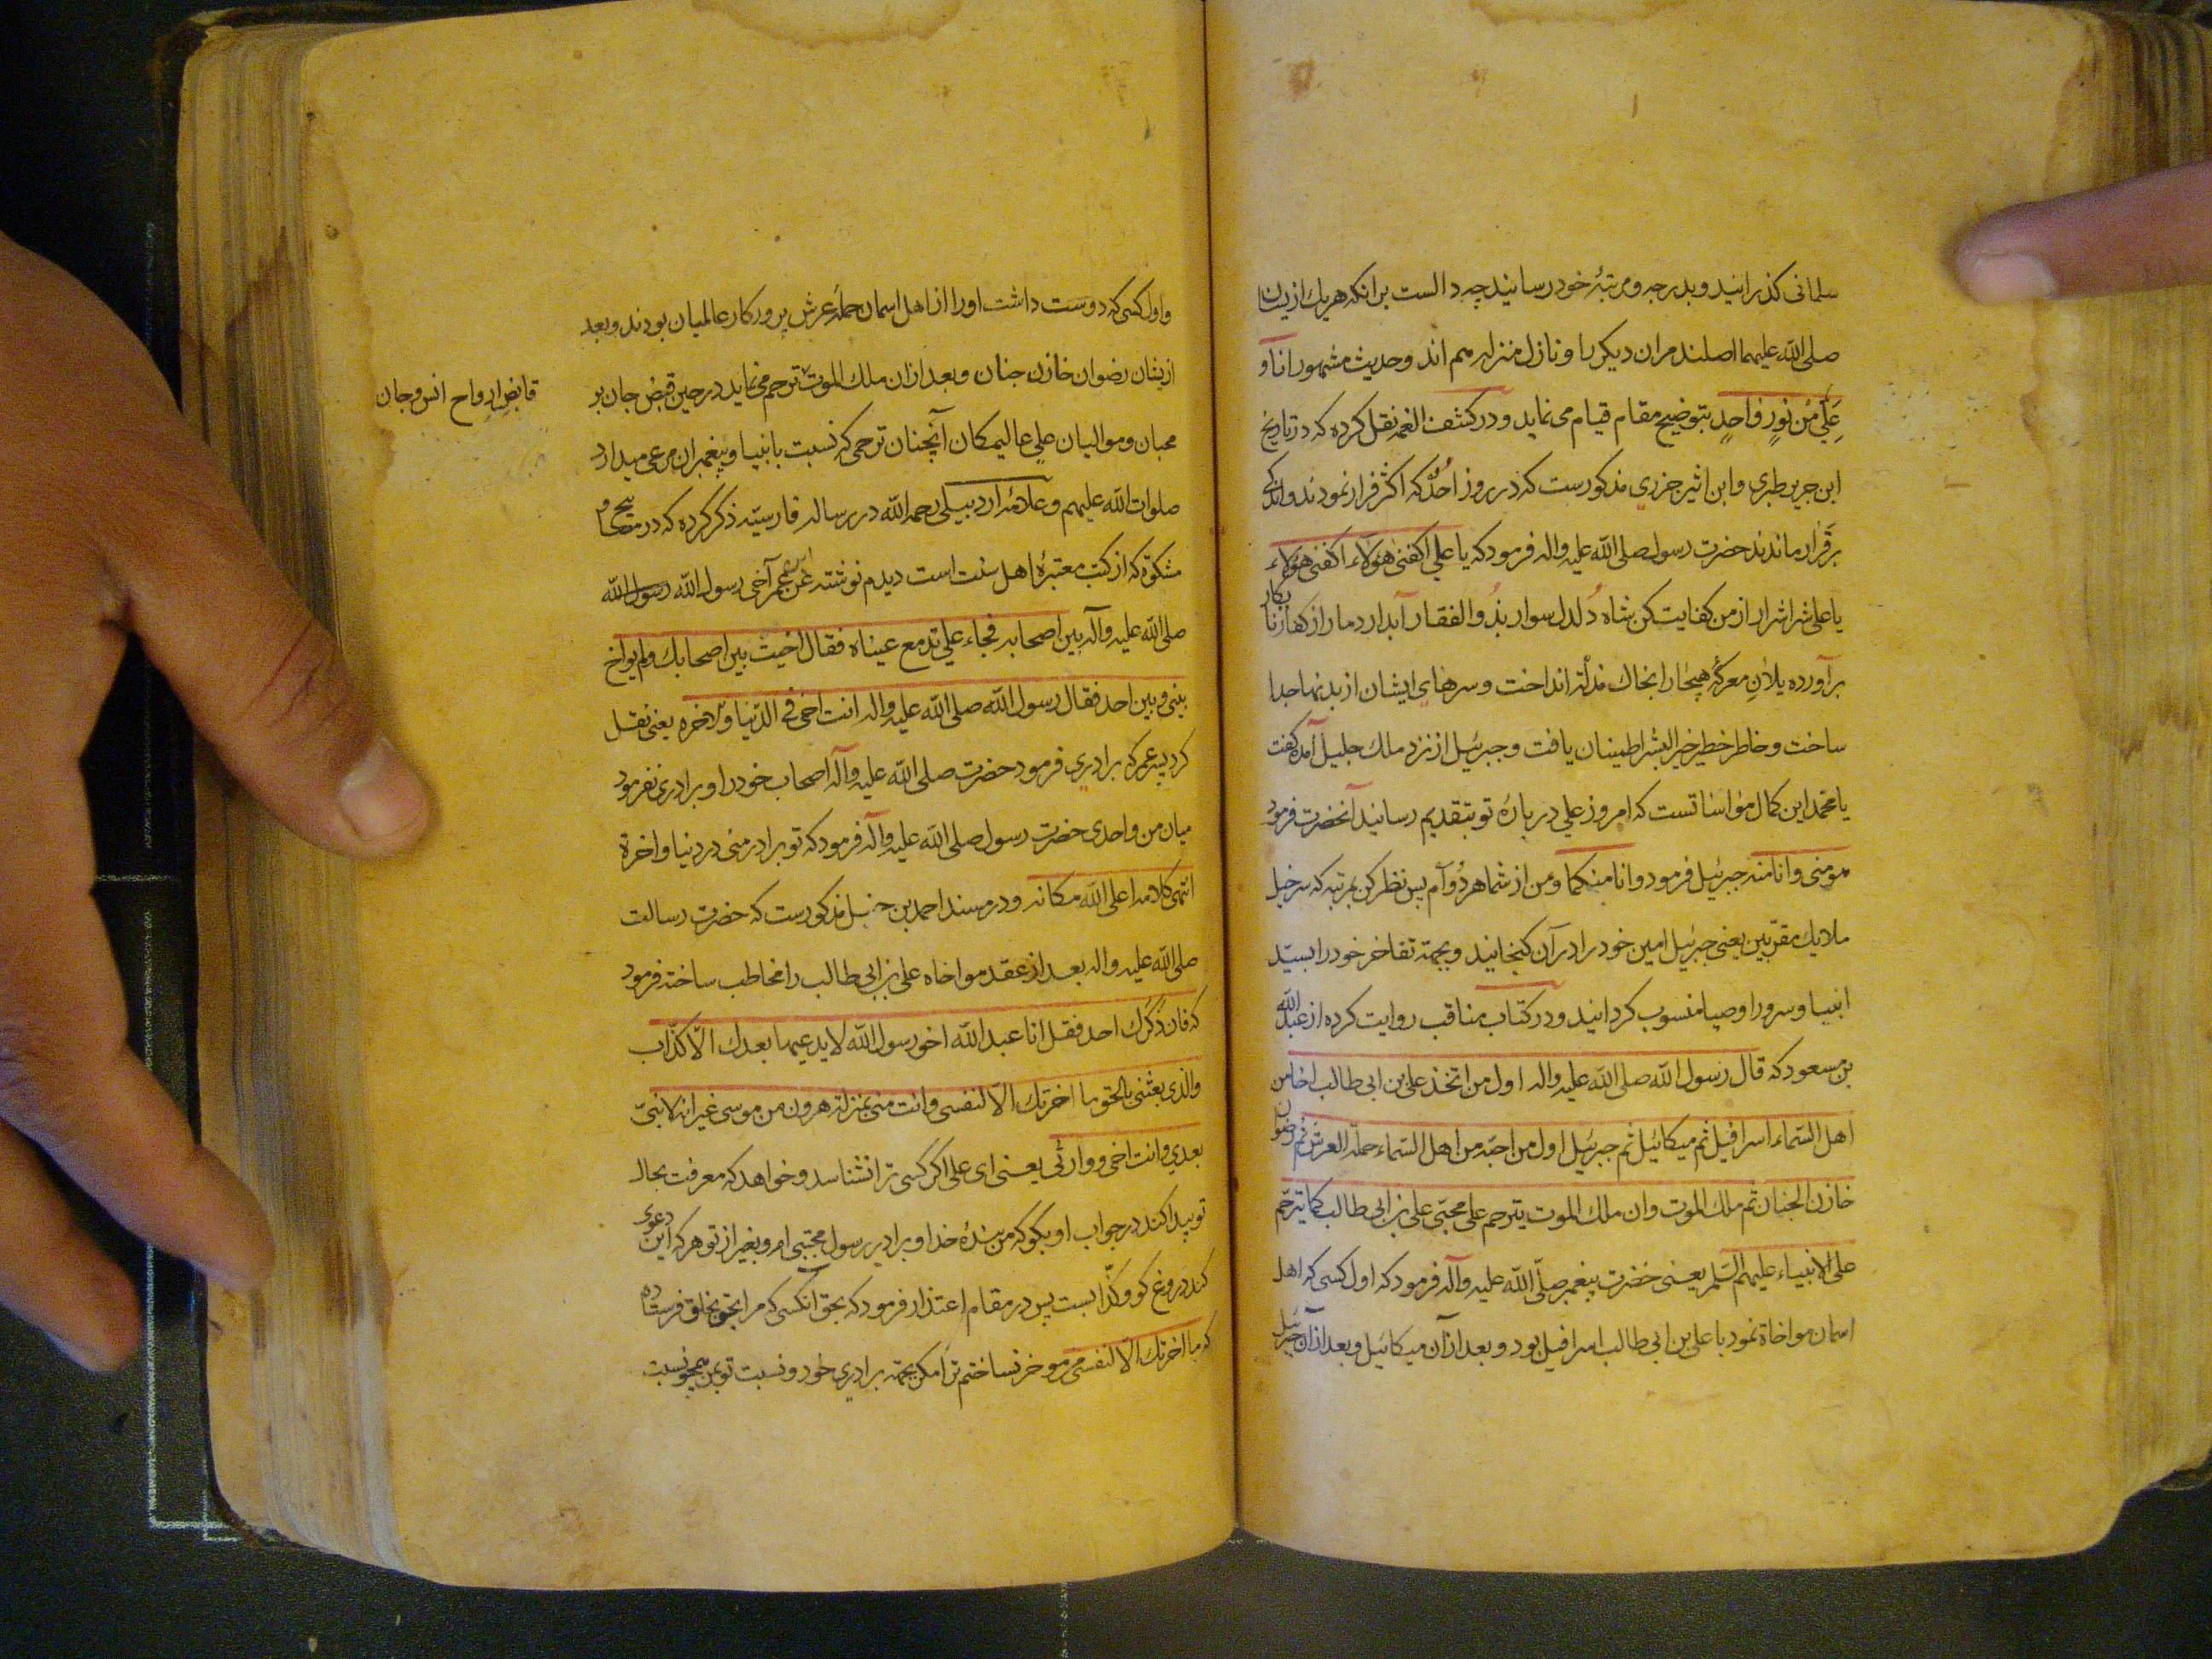 سلمانی گذرانید و بدرجه و مرتبهٔ خود رسانید چه دالست برانکه هریك ازیشان
صلی الله علیهما اصلند مران دیگر را و نازل منزله هم اند و حدیث مشهور انا و
عَلیّ مِن نُورٍ واحدٍ بتوضیح مقام قیام می نماید و در کشف الغمه نقل کرده که در تاریخ
ابن جریر طبری و ابن اثیر جزری مذکورست که در روز اُحُد که اکثر فرار نمودند و اندکی
برقرار ماندند حضرت رسول صلی الله علیه واله فرمود که یا علی اکفنی هؤلاء اکفنی هؤلاء
یا علی شر اشرار از من کفایت کن شاه دُلدل سوار بذُوالفقار آبدار دمار از کفار نابکار
برآورده یلان معرکهٔ هیجا را بخاك مذلّة انداخت و سرهای ایشان از بدنها جدا
ساخت و خاطر خطیر خیر البشر اطمینان یافت و جبرئیل از نزد ملك جلیل آمده گفت
یا محمد این کمال مؤاساتست که امروز علی در بارهٔ تو بتقدیم رسانید آنحضرت فرمود
هو منی وانا منه جبرئیل فرمود وانا منکما ومن از شما هر دُو آم پس نظر کن بمرتبه که سرخیل
ملایك مقرّبین یعنی جبرئیل امین خود را در آن گنجانید و بجهة تفاخر خود را بسیّد
انبیا و سرور اوصیا منسوب گردانید و در کتاب مناقب روایت کرده از عبدالله
بن مسعود که قال رسول الله صلی الله علیه واله اول من اتخذ علی بن ابی طالب اخا من
اهل السّماء اسرافیل ثم میکائیل ثم جبرئیل اول من احبّه من اهل السّماء حملة العرش ثم رضوان
خازن الجنان ثم ملك الموت وان ملك الموت یترحم علی محبّی علی بن ابی طالب کما یترحّم
علی الانبیاء علیهم السّلم یعنی حضرت پیغمبر صلّی الله علیه وآله فرمود که اول کسی که اهل
اسمان مواخاة نمود با علی بن ابی طالب اسرافیل بود و بعد ازآن میکائیل و بعد ازآن جبرئیل
و اول کسی که دوست داشت او را از اهل اسمان حملهٔ عرش پروردکار عالمیان بودند و بعد
ازیشان رضوان خازن جنان و بعد ازان ملك الموت ترحم می نماید در حین قبض جان بر
قابض ارواح انس و جان
محبان و موالیان علی عالیمکان آنچنان ترحمی که نسبت بانبیا و پیغمبران مرعی میدارد
صلوات الله علیهم و علامهٔ اردبیلی رحمه الله در رساله فارسیّه ذکر کرده که در مصابیح و
مشکوة که از کتب معتبرهٔ اهل سنت است دیدم نوشته عن ابن عمر آخی رسول الله رسول الله
صلی الله علیه وآله بین اصحابه فجاء علی تدمع عیناه فقال اخیت بین اصحابك ولم یواخ
بینی وبین احد فقال رسول الله صلی الله علیه واله انت اخی فی الدّنیا والاخره یعنی نقل
کرد پسر عمر که برادری فرمود حضرت صلی الله علیه وآله اصحاب خود را و برادری نفرمود
میان من و احدی حضرت رسول صلی الله علیه وآله فرمود که تو برادر منی در دنیا و اخرة
انتهی کلامه اعلی الله مکانه و در مسند احمد بن حنبل مذکورست که حضرت رسالت
صلی الله علیه واله بعد از عقد مواخاه علی بن ابی طالب را مخاطب ساخته فرمود
که فان ذَکَرَك احد فقل انا عبد الله اخو رسول الله لا یدعیها بعدك الّا کذّاب
والذی بعثنی بالحق ما اخرتك الّا لنفسی وانت منی بمنزلة هرون من موسی غیر انه لا نبیّ
بعدی وانت اخی ووارثی یعنی ای علی اگر کسی ترا نشناسد و خواهد که معرفت بحال
تو پیدا کند در جواب او بگو که من بندهٔ خدا و برادر رسول مجتبی ام و بغیر از تو هر که این دعوی
کند دروغ کو و کذّابست پس در مقام اعتذار فرمود که بحق آنکسی که مرا بحق بخلق فرستاده
که ما اخرتك الّا لنفسی موخر نساختم ترا مگر بجهة برادری خود و نسبت تو بمن همچو نسبت